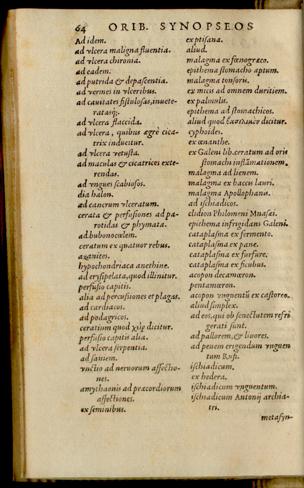 64 ORIB. SYNOPSEOS
Ad idem.
ad vlcera maligna fluentia.
ad vlcera chironia.
ad eadem.
ad putrida & depascentia.
ad vermes in vlceribus.
ad cauitates fistulosas, inuete-
ratasq;.
ad vlcera flaccida.
ad vlcera, quibus ægrè cica-
trix inducitur.
ad vlcera vetusta.
ad maculas & cicatrices exte-
rendas.
ad vngues scabiosos.
dia halon.
ad cancrum vlceratum.
cerata & perfusiones ad pa-
rotidas & phymata.
ad bubonocelem.
ceratum ex quatuor rebus.
hypochondriaca anethine.
ad erysipelata, quod illinitur.
perfusio capitis.
alia ad percussiones et plagas.
ad cardiacos.
ad podagricos.
ceratium quod dicitur.
perfusio capitis alia.
ad vlcera serpentia.
ad saniem.
vnctio ad neruorum affectio-
nes.
amythaonis ad præcordiorum
affectiones.
ex seminibus.
ex ptisana.
aliud.
malagma ex fœnogræco.
epithema stomacho aptum.
malagma tonsoris.
ex micis ad omnem duritiem.
ex palmulis.
epithema ad stomachicos.
aliud quod dicitur.
cyphoides.
ex œnanthe.
ex Galeni lib. ceratum ad oris
stomachi inflãmationem.
malagma ad lienem.
malagma ex baccis lauri.
malagma Apollophanis.
ad ischiadicos.
Philomeni Mnasæi.
epithema infrigidans Galeni.
cataplasma ex fermento.
cataplasma ex pane.
cataplasma ex furfure.
cataplasma ex ficubus.
acopon decamœron.
pentamœron.
acopon vnguentũ ex castoreo.
aliud simplex.
ad eos, qui ob senectutem refri
gerati sunt.
ad pallorem, & liuores.
ad penem erigendum vnguen
tum Rufi.
ischiadicum.
ex hedera.
ischiadicum vnguentum.
ischiadicum Antonij archia-
tri.
metasyn-